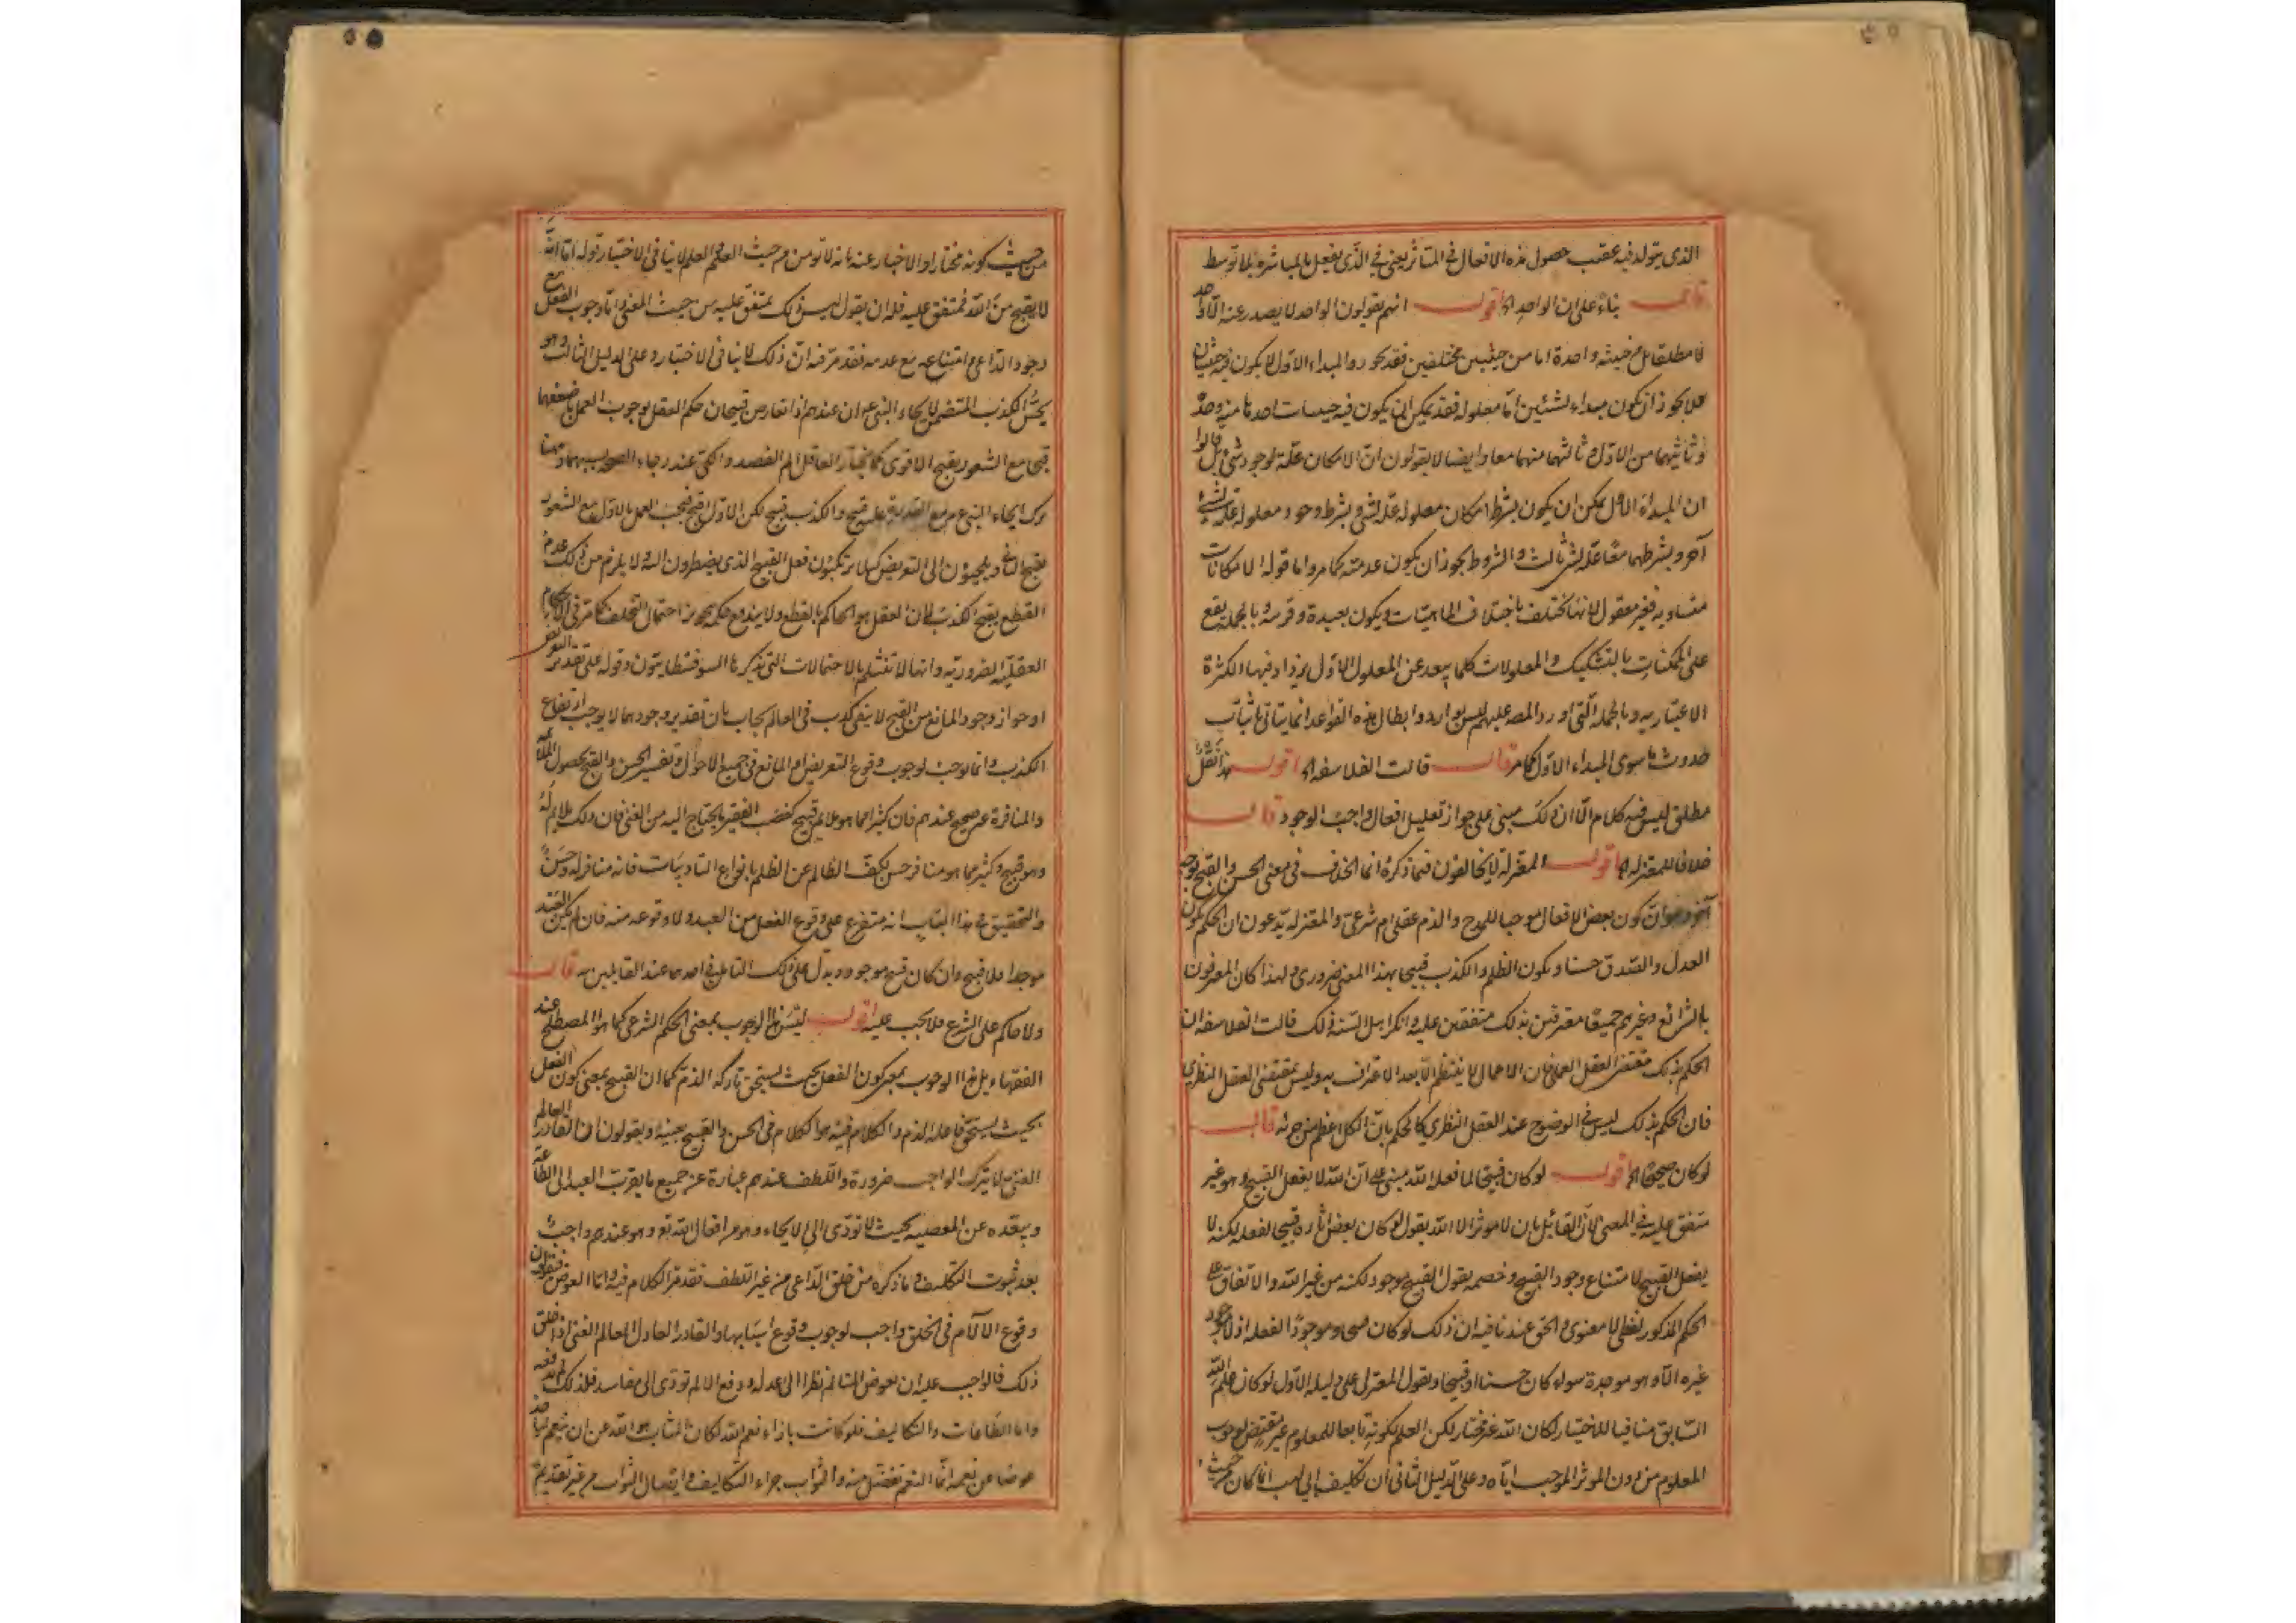 الذى يتولد فيه عقيب حصول هذه الافعال فى المتاثر يعنى فى الذى يفعل بالمباشرة بلا توسط
قال بناء على ان الواحد اه اقول انهم يقولون الواحد لا يصدر عنه الا الواحد
لا مطلقا بل من حيثية واحدة اما من حيثيتين مختلفتين فقد يجوز والمبداء الاول لا يكون فيه حيثيتان
فلا يجوز ان يكون مبداء لشيئين اما معلوله فقد يمكن ان يكون فيه حيثيات احدها منه وحده
وثانيها من الاول وثالثها منهما معا وايضا لا يقولون ان الامكان علة لوجود شئ بل قالوا
ان المبداء الاول يمكن ان يكون بشرط امكان معلوله علة لشئ وبشرط وجود معلوله علة لشئ
آخر وبشرطهما معا علة لشئ ثالث والشروط يجوز ان يكون عدمية كما مر واما قوله الامكانات
متساوية فغير معقول لانها تختلف باختلاف الماهيات ويكون بعيدة وقريبة وبالجملة يقع
على الممكنات بالتشكيك والمعلولات كلما يبعد عن المعلول الاول يزداد فيها الكثرة
الاعتبارية وبالجملة التى اورد المص عليهم ليس بوارد وابطال هذه القواعد انما يتاتى باثبات
حدوث ما سوى المبداء الاول كما مر قال قالت الفلاسفة اه اقول هذا نقل
مطلق ليس فيه كلام الا ان ذلك مبنى على جواز تعليل افعال واجب الوجود قال
خلافا للمعتزلة اه اقول المعتزلة لا يخالفون فيما ذكره انما الخلاف فى معنى الحسن والقبح بوجه
آخر وهو ان كون بعض الافعال موجبا للمدح والذم عقلى ام شرعى والمعتزلة يدعون ان الحكم بكون
العدل والصدق حسنا وبكون الظلم والكذب قبيحا بهذا المعنى ضرورى ولهذا كان المعترفون
بالشرائع وغيرهم جميعا معترفين بذلك متفقين عليه وانكر اهل السنة ذلك قالت الفلاسفة ان
الحكم بذلك مقتضى العقل العملى فان الاعمال لا ينتظم الا بعد الاعتراف به وليس بمقتضى العقل النظرى
فان الحكم بذلك ليس فى الوضوح عند العقل النظرى كالحكم بان الكل اعظم من جزئه قال
لو كان صحيحا اه اقول لو كان قبيحا لما فعله الله مبنى على ان الله لا يفعل القبيح وهو غير
متفق عليه فى المعنى لان القائل بان لا موثر الا الله يقول لو كان بعض اثاره قبيحا لفعله لكنه لا
يفعل القبيح لامتناع وجود القبيح وخصمه يقول القبيح موجود لكنه من غير الله والاتفاق على
الحكم المذكور لفظى لا معنوى والحق عند نافيه ان ذلك لو كان قبيحا وموجودا لفعله اذ لا موجود
غيره الا وهو موجده سواء كان حسنا او قبيحا ويقول المعتزلى على دليله الاول لو كان علم الله
السابق منافيا للاختيار لكان الله غير مختار لكن العلم لكونه تابعا للمعلوم غير مقتض لوجوب
المعلوم من دون الموثر الموجب اياه وعلى الدليل الثانى ان تكليف ابى لهب انما كان من حيث
من حيث كونه مختارا والاخبار عنه بانه لا يؤمن من حيث العلم والعلم لا ينافى الاختيار قوله اما انه
لا يقبح من الله فمتفق عليه فله ان يقول ليس ذلك بمتفق عليه من حيث المعنى واما وجوب الفعل مع
وجود الداعى وامتناعه مع عدمه فقد مر فيه ان ذلك لا ينافى الاختيار وعلى الدليل الثالث وهو
يحسن الكذب المتضمن لانجاء النبى ع ان عندهم اذا تعارض قبيحان حكم العقل بوجوب العمل باضعفهما
قبحا مع الشعور بقبح الاقوى كما يختار العاقل الم الفصد والكى عند رجاء الصحة بسببهما وههنا
ترك انجاء النبى ع مع القدرة عليه قبيح والكذب قبيح لكن الاول اقبح فيجب العمل بالثانى مع الشعور
بقبح الثانى ويلجئون الى التعريض كيلا يرتكبون فعل القبيح الذى يضطرون اليه ولا يلزم من ذلك عدم
القطع بقبح الكذب لان العقل هو الحاكم بالقطع ولا يندفع حكمه بتجويز احتمال التخلف كما مر فى الاحكام
العقلية الضرورية وانها لا تنثلم بالاحتمالات التى يذكرها السوفسطائيون وقوله على تقدير التعريض
او جواز وجود المانع من القبح لا يبقى كذب فى العالم يجاب بان تقدير وجودهما لا يوجب ارتفاع
الكذب وانما يوجب لوجوب وقوع التعريض او المانع فى جميع الاحوال وتفسير الحسن والقبح بحصول الملائمة
والمنافرة غير صحيح عندهم فان كثيرا مما هو ملايم قبيح كغصب الفقير ما يحتاج اليه من الغنى فان ذلك ملايم له
وهو قبيح وكثير مما هو منافر حسن ككف الظالم عن الظلم بانواع التاديبات فانه منافر له وحسن
والتحقيق فى هذا الباب انه متفرع على وقوع الفعل من العبد ولا وقوعه منه فان لم يكن العبد
موجدا فلا قبيح وان كان قبيح موجود ويدل على ذلك التامل فى احدهما عند القايلين به قال
ولا حاكم على الشرع فلا يجب عليه اقول ليس هذا الوجوب بمعنى الحكم الشرعى كما هو المصطلح عند
الفقهاء بل هذا الوجوب بمعنى كون الفعل بحيث يستحق تاركه الذم كما ان القبيح بمعنى كون الفعل
بحيث يستحق فاعله الذم والكلام فيه هو الكلام فى الحسن والقبح بعينه ويقولون ان القادر العالم
الغنى لا يترك الواجب ضرورة واللطف عندهم عبارة عن جميع ما يقرب العبد الى الطاعة
ويبعده عن المعصية بحيث لا تؤدى الى الالجاء وهو من افعال الله تع وهو عندهم واجب
بعد ثبوت التكليف وما ذكره من خلق الداعى من غير اللطف فقد مر الكلام فيه واما العوض فيقولون
وقوع الآلام فى الخلق واجب لوجوب وقوع اسبابها والقادر العادل العالم الغنى اذا خلق
ذلك فالواجب عليه ان يعوض المتالم نظرا الى عدله ودفع الالم تودى الى مفاسد فلذلك لم يدفعه
واما الطاعات والتكاليف فلو كانت بازاء نعم الله لكان المثاب هو الله عن ان ينعم لياخذ
عوضا عن نعمه انما النعم تفضل منه والثواب جزاء التكاليف وايصال الثواب من غير تقديم